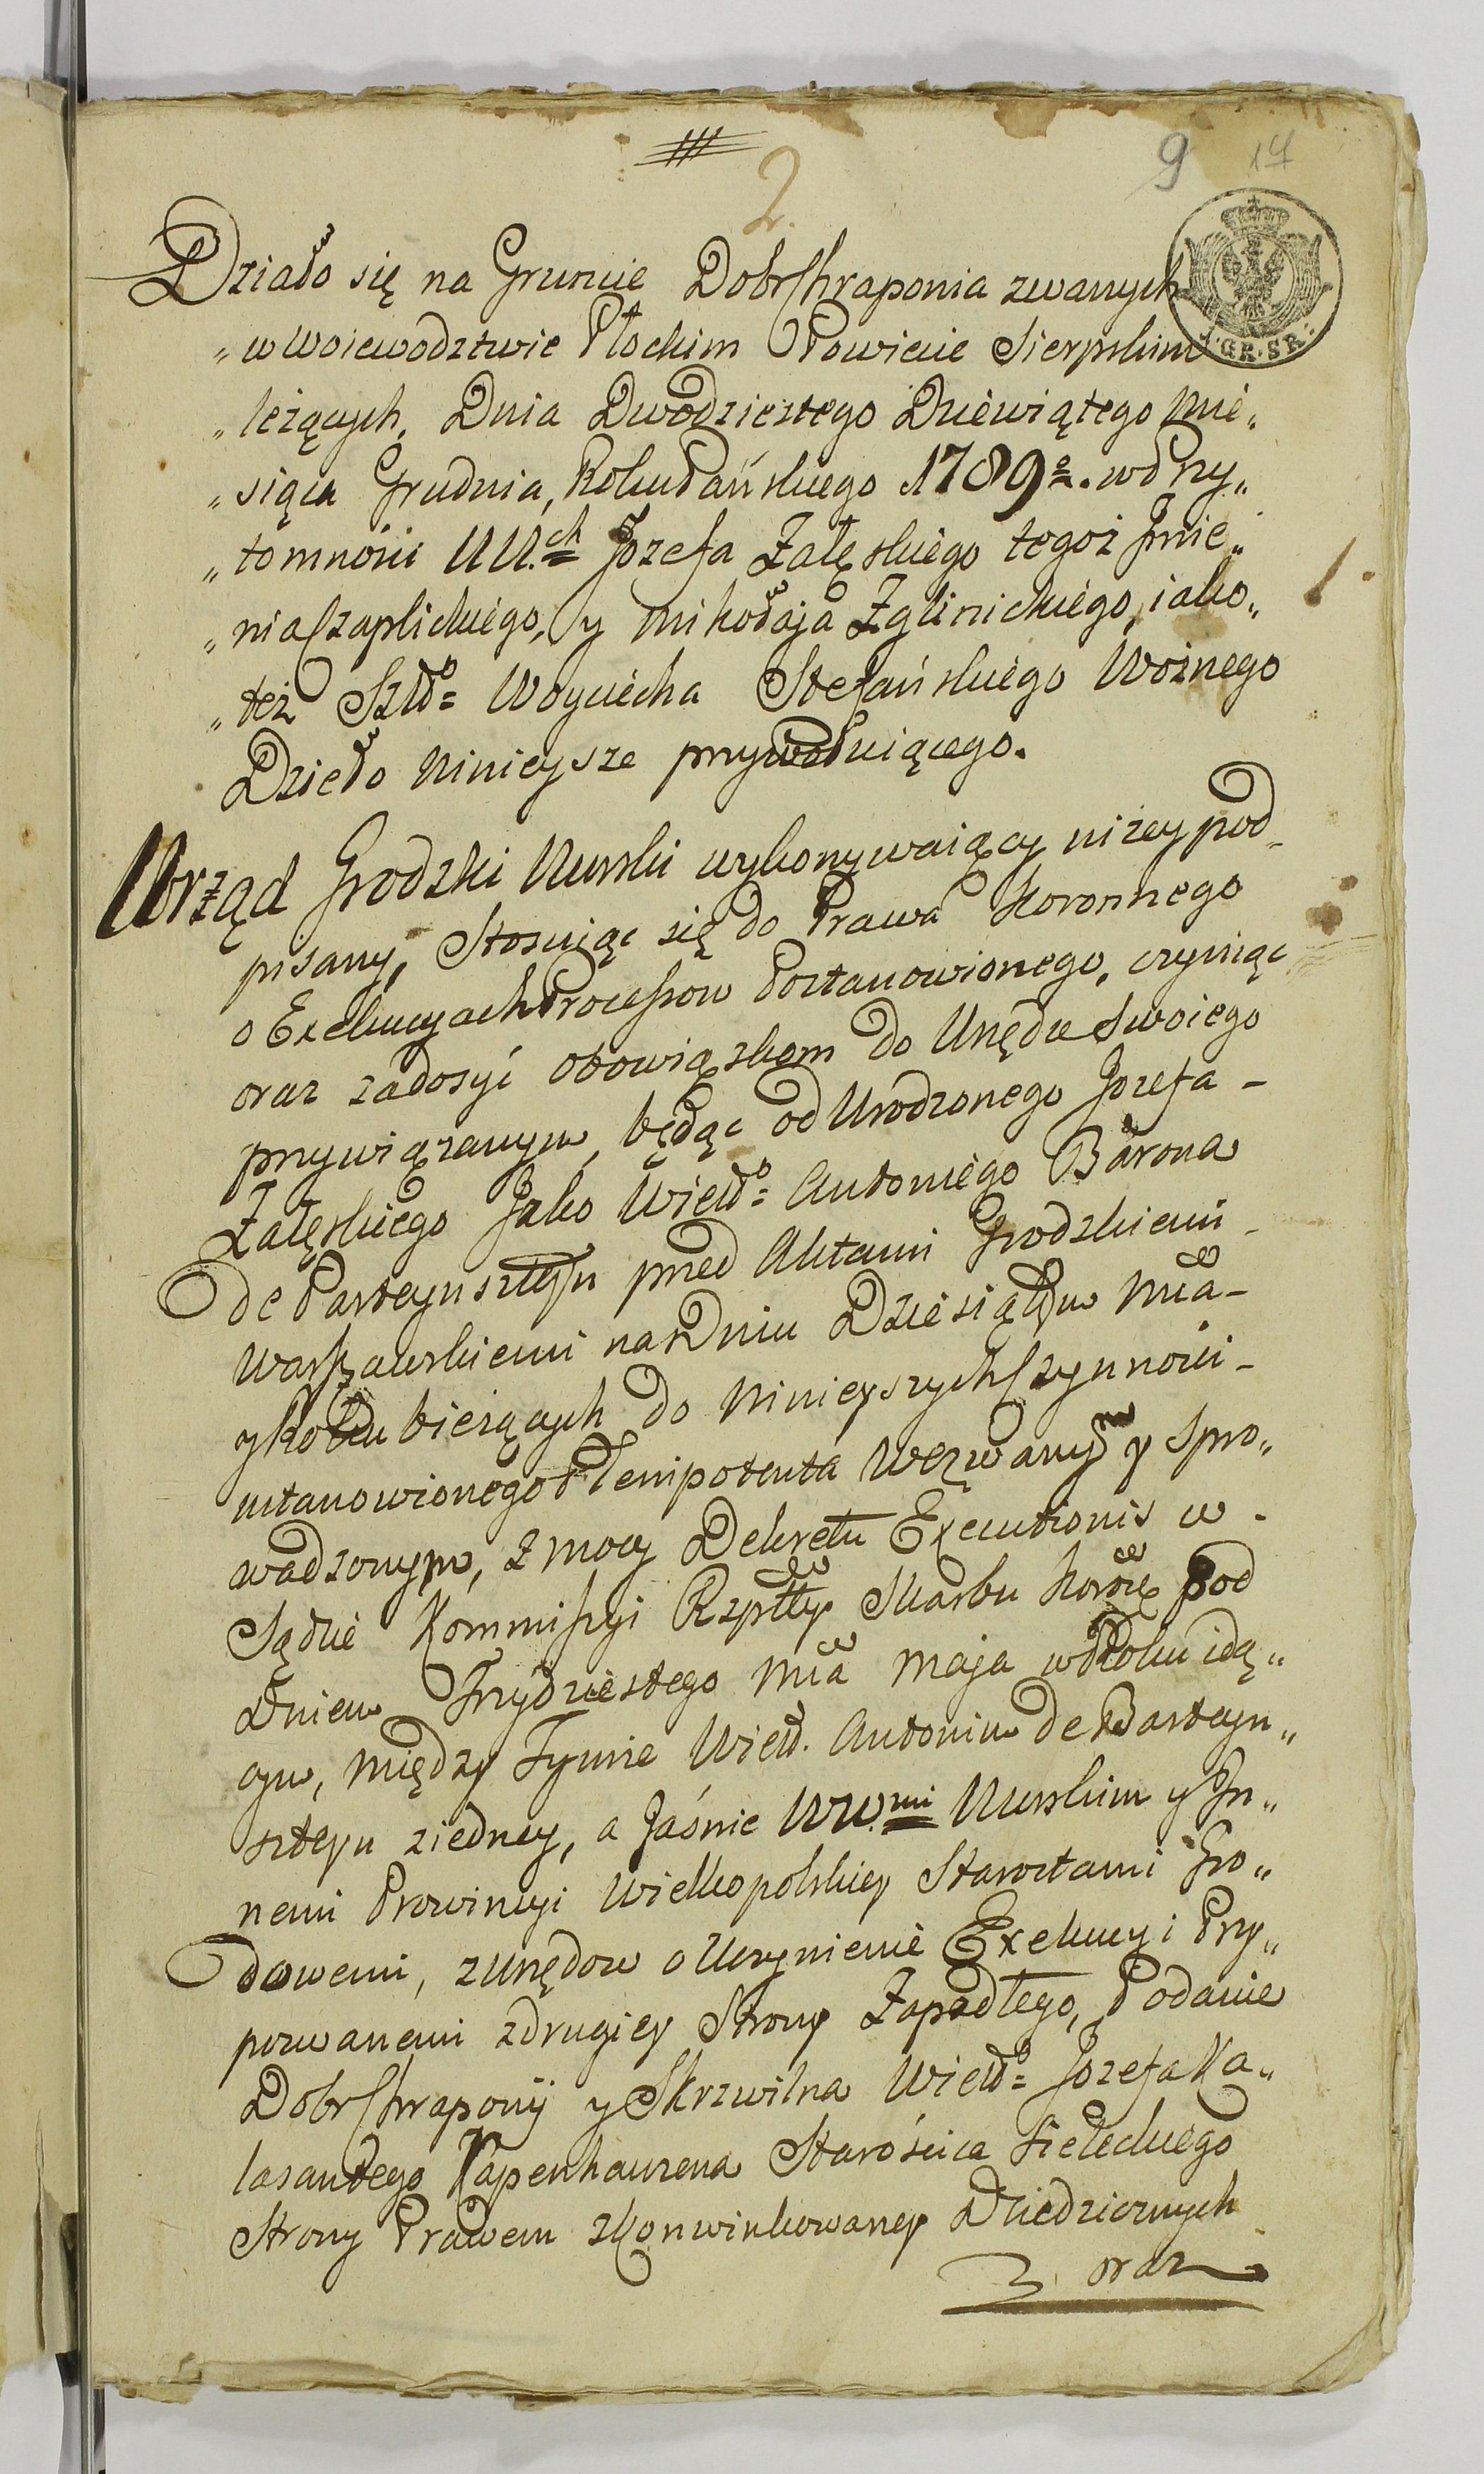 2.
9 17
Działo się na Gruncie Dobr Chraponia zwanych
„w Woiewodztwie Płockim Powiecie Sierpskim
„leżących, Dnia Dwódziestego Dziewiątego Mie„
„siąca Grudnia, Roku Pańskiego 1789o. w Przy„
„tomności UU.ch Jozefa Załęskiego tegoż Jmie„
„nia Czaplickiego, y Mikołaja Zglinickiego, iako„
„też Szldo= Woyciecha Stefańskiego Woźnego
Dzieło Ninieysze przywodniącego.
Urząd Grodzki Nurski wykonywaiący niżey pod„
pisany, Stosuiąc się do Prawa Koronnego
o Exekucyach Processow Postanowionego, czyniąc
oraz zadosyć obowiązkom do Urzędu Swoiego
przywiązanym, będąc od Urodzonego Jozefa –
Załęskiego Jako Wieldo= Antoniego Barona
de Parteynsteyn przed Aktami Grodzkiemi –
Warszawskiemi na Dniu Dziesiątym Mca –
y Roku bieżących do Ninieyszych Czynności –
ustanowionego Plenipotenta Wezwanym y Spro„
wadzonym, z mocy Dekretu Executionis w
Sądzie Kommissyi Rzpltey Skarbu Koro pod
Dniem Trzydziestego Mca Maja w Roku idą„
cym, między Tymże Wield. Antonim de Parteyn„
szteyn ziedney, a Jaśnie WW.mi Nurskim y In„
nemi Prowincyi Wielkopolskiey Starostami Gro„
dowemi, z Urzędow o Uczynienie Exekucyi Przy„
pozwanemi zdrugiey Strony Zapadłego, Podanie
Dobr Chraponij y Skrzwilna Wieldo= Jozefa Ka„
lasantego Kapenhauzena Starościca Sieleckiego
Strony Prawem zkonwinkowaney Dziedzicznych
oraz
GR. SR.